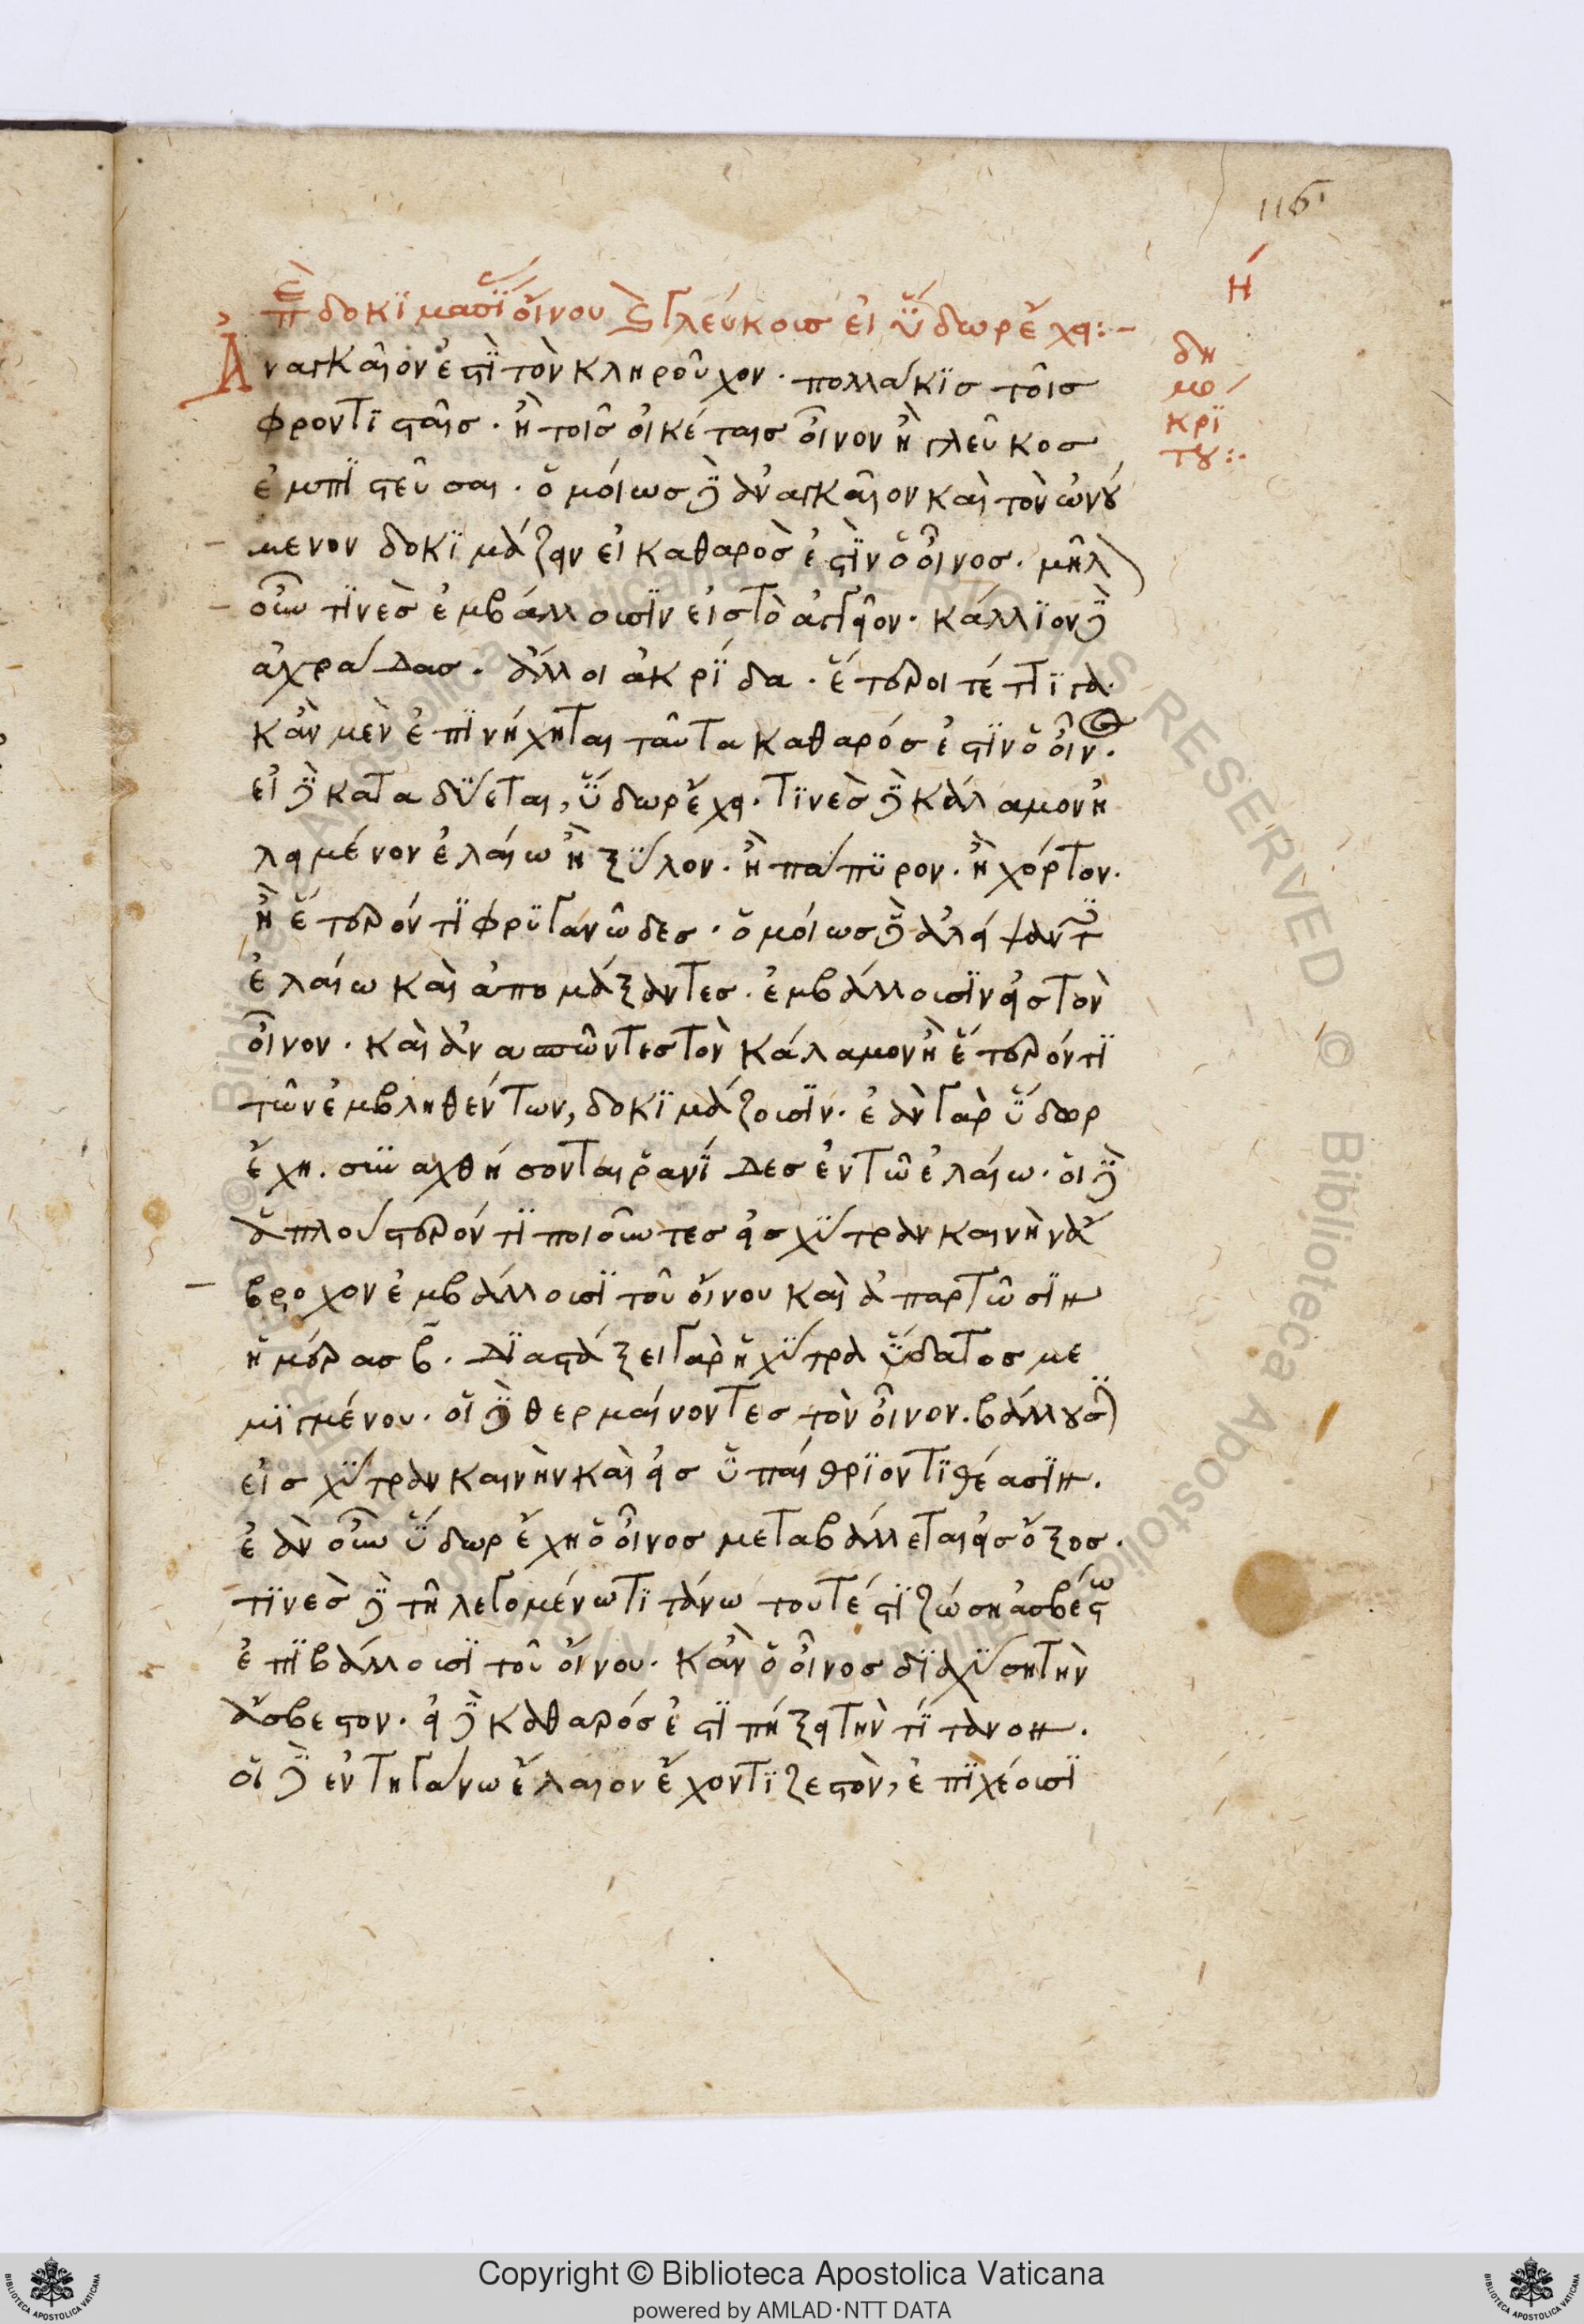 116
ή
ἐπὶ δοκϊμασϊ οἴνου ϗ γλεύκουσ εἰ ὕδωρ ἔχει:-
δη
μο
κρϊ
του:.
Ἀναγκαῖον ἐστῒ τὸν κληροῦχον· πολλάκϊσ τοῖσ
φροντϊσταῖσ· ἢ τοῖσ οἰκέταισ οἶνον ἢ γλεῦκοσ
ἐμπϊστεῦσαι· ὁμοίωσ δὲ ἀναγκαῖον καὶ τὸν ὠνού
μενον δοκϊμάζειν εἰ καθαρὸσ ἐστῒν ὁ οἶνοσ. μῆλ
οὖν τϊνὲσ ἐμβάλλουσϊν εἰσ τὸ ἀγγεῖον· κάλλϊον δὲ
ἀχράδασ. ἄλλοι ἀκρΐδα· ἕτεροι τέττϊγα·
κἂν μὲν ἐπϊνήχηται ταῦτα καθαρόσ ἐστϊν ὁ οἶν.
εἰ δὲ καταδΰεται, ὕδωρ ἔχει. τϊνὲσ δὲ κάλαμον ἠ
λειμένον ἐλαίω ἢ ξΰλον. ἢ πάπϋρον. ἢ χόρτον.
ἢ ἕτερόν τϊ φρϋγανῶδεσ· ὁμοίωσ δὲ ἀλείψαντ
ἐλαίω καὶ ἀπομάξαντεσ. ἐμβάλλουσϊν εἰσ τὸν
οἶνον. καὶ ἀνασπῶντεσ τὸν κάλαμον ἢ ἕτερόν τϊ
τῶν ἐμβληθέντων, δοκϊμάζουσϊν. ἐὰν γὰρ ὕδωρ
ἔχη. συναχθήσονται ῥανΐδεσ ἐν τῶ ἐλαίω. οἱ δὲ
ἁπλούστερόν τϊ ποιοῦντεσ εἰσ χΰτραν καινὴν ἄ
βροχον ἐμβάλλουσϊ τοῦ οἴνου καὶ ἀπαρτῶσϊν
ἡμέρασ β. δϊαστάξει γὰρ ἡ χΰτρα ὕδατοσ με
μϊγμένου. οἱ δὲ θερμαίνοντεσ τὸν οἶνον. βάλλουσ
εἰσ χΰτραν καινὴν καὶ εἰσ ὑπαίθρϊον τϊθέασϊν.
ἐὰν οὖν ὕδωρ ἔχη ὁ οἶνοσ μεταβάλλεται εἰσ ὄξοσ.
τϊνὲσ δὲ τῆ λεγομένω τϊτάνω τουτέστϊ ζώση ἀσβέστω
ἐπϊβάλλουσϊ τοῦ οἴνου. κἂν ὁ οἶνοσ δϊαχΰση τὴν
ἄσβεστον. εἰ δὲ καθαρόσ ἐστϊ πήξει τὴν τΐτανον.
οἱ δὲ ἐν τηγάνω ἔλαιον ἔχοντϊ ζεστὸν, ἐπϊχέουσϊ
Copyright © Biblioteca Apostolica Vaticana
powered by AMLAD·NTT DATA